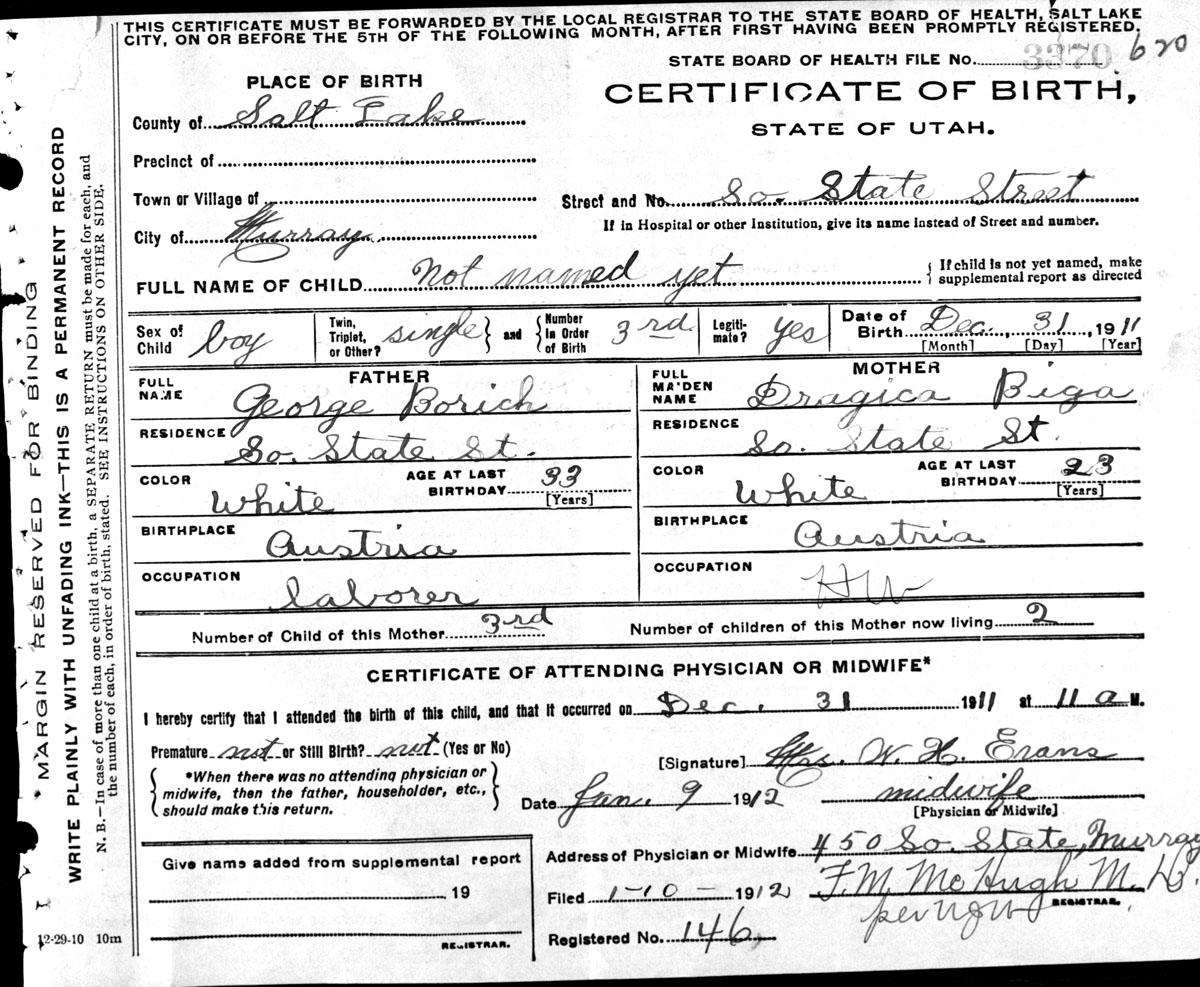 THIS CERTIFICATE MUST BE FORWARDED BY THE LOCAL REGISTRAR TO THE STATE BOARD OF HEALTH, SALT LAKE
CITY, ON OR BEFORE THE 5TH OF THE FOLLOWING MONTH, AFTER FIRST HAVING BEEN PROMPTLY REGISTERED.
STATE BOARD OF HEALTH FILE No. 3370 620
PLACE OF BIRTH
CERTIFICATE OF BIRTH,
STATE OF UTAH.
County of Salt Lake
Precinct of
Town or Village of
Street and No. So. State Street
City of Murray
If in Hospital or other Institution, give its name instead of Street and number.
FULL NAME OF CHILD Not named yet { If child is not yet named, make
supplemental report as directed
Sex of
Child boy
Twin,
Triplet,
or Other? single } and { Number
in Order
of Birth 3rd
Legiti-
mate? yes
Date of
Birth Dec. 31, 1911
[Month] [Day] [Year]
FATHER
FULL
NAME George Borich
RESIDENCE
So. State St.
COLOR
White
AGE AT LAST
BIRTHDAY 33
[Years]
BIRTHPLACE
Austria
OCCUPATION
laborer
MOTHER
FULL
MAIDEN
NAME Dragica Biga
RESIDENCE
So. State St.
COLOR
White
AGE AT LAST
BIRTHDAY 23
[Years]
BIRTHPLACE
Austria
OCCUPATION
HW
Number of Child of this Mother 3rd
Number of children of this Mother now living 2
CERTIFICATE OF ATTENDING PHYSICIAN OR MIDWIFE*
I hereby certify that I attended the birth of this child, and that it occurred on Dec. 31 1911 at 11 a M.
Premature not or Still Birth? not (Yes or No)
{ *When there was no attending physician or
midwife, then the father, householder, etc.,
should make this return. }
[Signature] Mrs. W. H. Evans
Date Jan. 9 1912 midwife
[Physician or Midwife]
Give name added from supplemental report
19
REGISTRAR.
Address of Physician or Midwife 450 So. State, Murray
Filed 1-10- 1912 F. M. McHugh M. D.
REGISTRAR.
per
Registered No. 146,
12-29-10 10m
* MARGIN RESERVED FOR BINDING *
WRITE PLAINLY WITH UNFADING INK—THIS IS A PERMANENT RECORD
N. B.—In case of more than one child at a birth, a SEPARATE RETURN must be made for each, and
the number of each, in order of birth, stated. SEE INSTRUCTIONS ON OTHER SIDE.